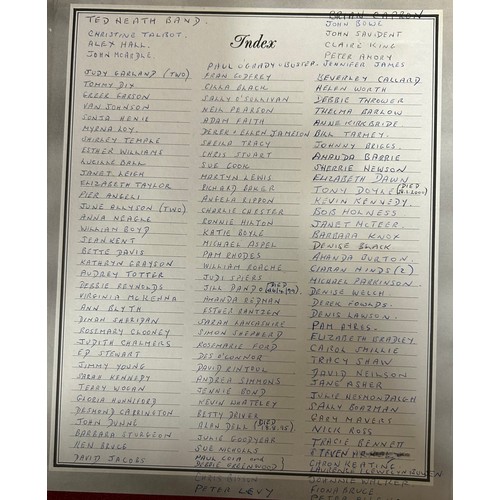 TED HEATH BAND.
CHRISTINE TALBOT.
ALEX HALL.
JOHN McARDLE.
Index
BRIAN CAPRON
JOHN BOWE
JOHN SAVIDENT
CLAIRE KING
PETER AMORY
JENNIFER JAMES
JUDY GARLAND (TWO)
TOMMY DIX
GREER GARSON
VAN JOHNSON
SONJA HENIE
MYRNA LOY.
SHIRLEY TEMPLE
ESTHER WILLIAMS
LUCILLE BALL
JANET LEIGH
ELIZABETH TAYLOR
PIER ANGELI
JUNE ALLYSON (TWO)
ANNA NEAGLE
WILLIAM BOYD
JEAN KENT
BETTE DAVIS
KATHRYN GRAYSON
AUDREY TOTTER
DEBBIE REYNOLDS
VIRGINIA McKENNA
ANN BLYTH
DINAH SHERIDAN
ROSEMARY CLOONEY
JUDITH CHALMERS
ED STEWART
JIMMY YOUNG
SARAH KENNEDY
TERRY WOGAN
GLORIA HUNNIFORD
DESMOND CARRINGTON
JOHN DUNNE
BARBARA STURGEON
KEN BRUCE
DAVID JACOBS
PAUL O'GRADY & BUSTER.
FRAN GODFREY
CILLA BLACK
SALLY O'SULLIVAN
NEIL PEARSON
ADAM FAITH
DEREK + ELLEN JAMEISON
SHEILA TRACY
CHRIS STUART
SUE COOK
MARTYN LEWIS
RICHARD BAKER
ANGELA RIPPON
CHARLIE CHESTER
RONNIE HILTON
KATIE BOYLE
MICHAEL ASPEL
PAM RHODES
WILLIAM ROACHE
JUDI SPIERS
JILL DANDO (DIED 26/4/99)
AMANDA REDMAN
ESTHER RANTZEN
SARAH LANCASHIRE
SIMON SHEPHERD
ROSEMARIE FORD
DES O'CONNOR
DAVID KINTROL
ANDREA SIMMONS
JENNIE BOND
KEVIN WHATELEY
BETTY DRIVER
ALAN DELL (DIED
JULIE GOODYEAR
SUE NICHOLLS
PAUL COIA and
DEBBIE GREENWOOD
CHRIS BITTIN
PETER LEVY
BEVERLEY CALLARD
HELEN WORTH
DEBBIE THROWER
THELMA BARLOW
ANNE KIRKBRIDE
BILL TARMEY.
JOHNNY BRIGGS.
AMANDA BARRIE
SHERRIE HEWSON
ELIZABETH DAWN
TONY DOYLE (DIED
KEVIN KENNEDY.
BOB HOLNESS
JANET McTEER.
BARBARA KNOX
DENISE BLACK
AMANDA BURTON.
CIARAN HINDS (2)
MICHAEL PARKINSON
DENISE WELCH
DEREK FOWLDS.
DENIS LAWSON.
PAM AYRES.
ELIZABETH BRADLEY.
CAROL SMILLIE
TRACY SHAW
DAVID NEILSON
JANE ASHER
JULIE HESMONDALGH
SALLY BOAZMAN
GABY MAVERS
NICK ROSS
TRACIE BENNETT
STEVEN
CARON KEATING
LAURENCE LLEWELYN BOWEN
JOHNNIE WALKER
FIONA BRUCE